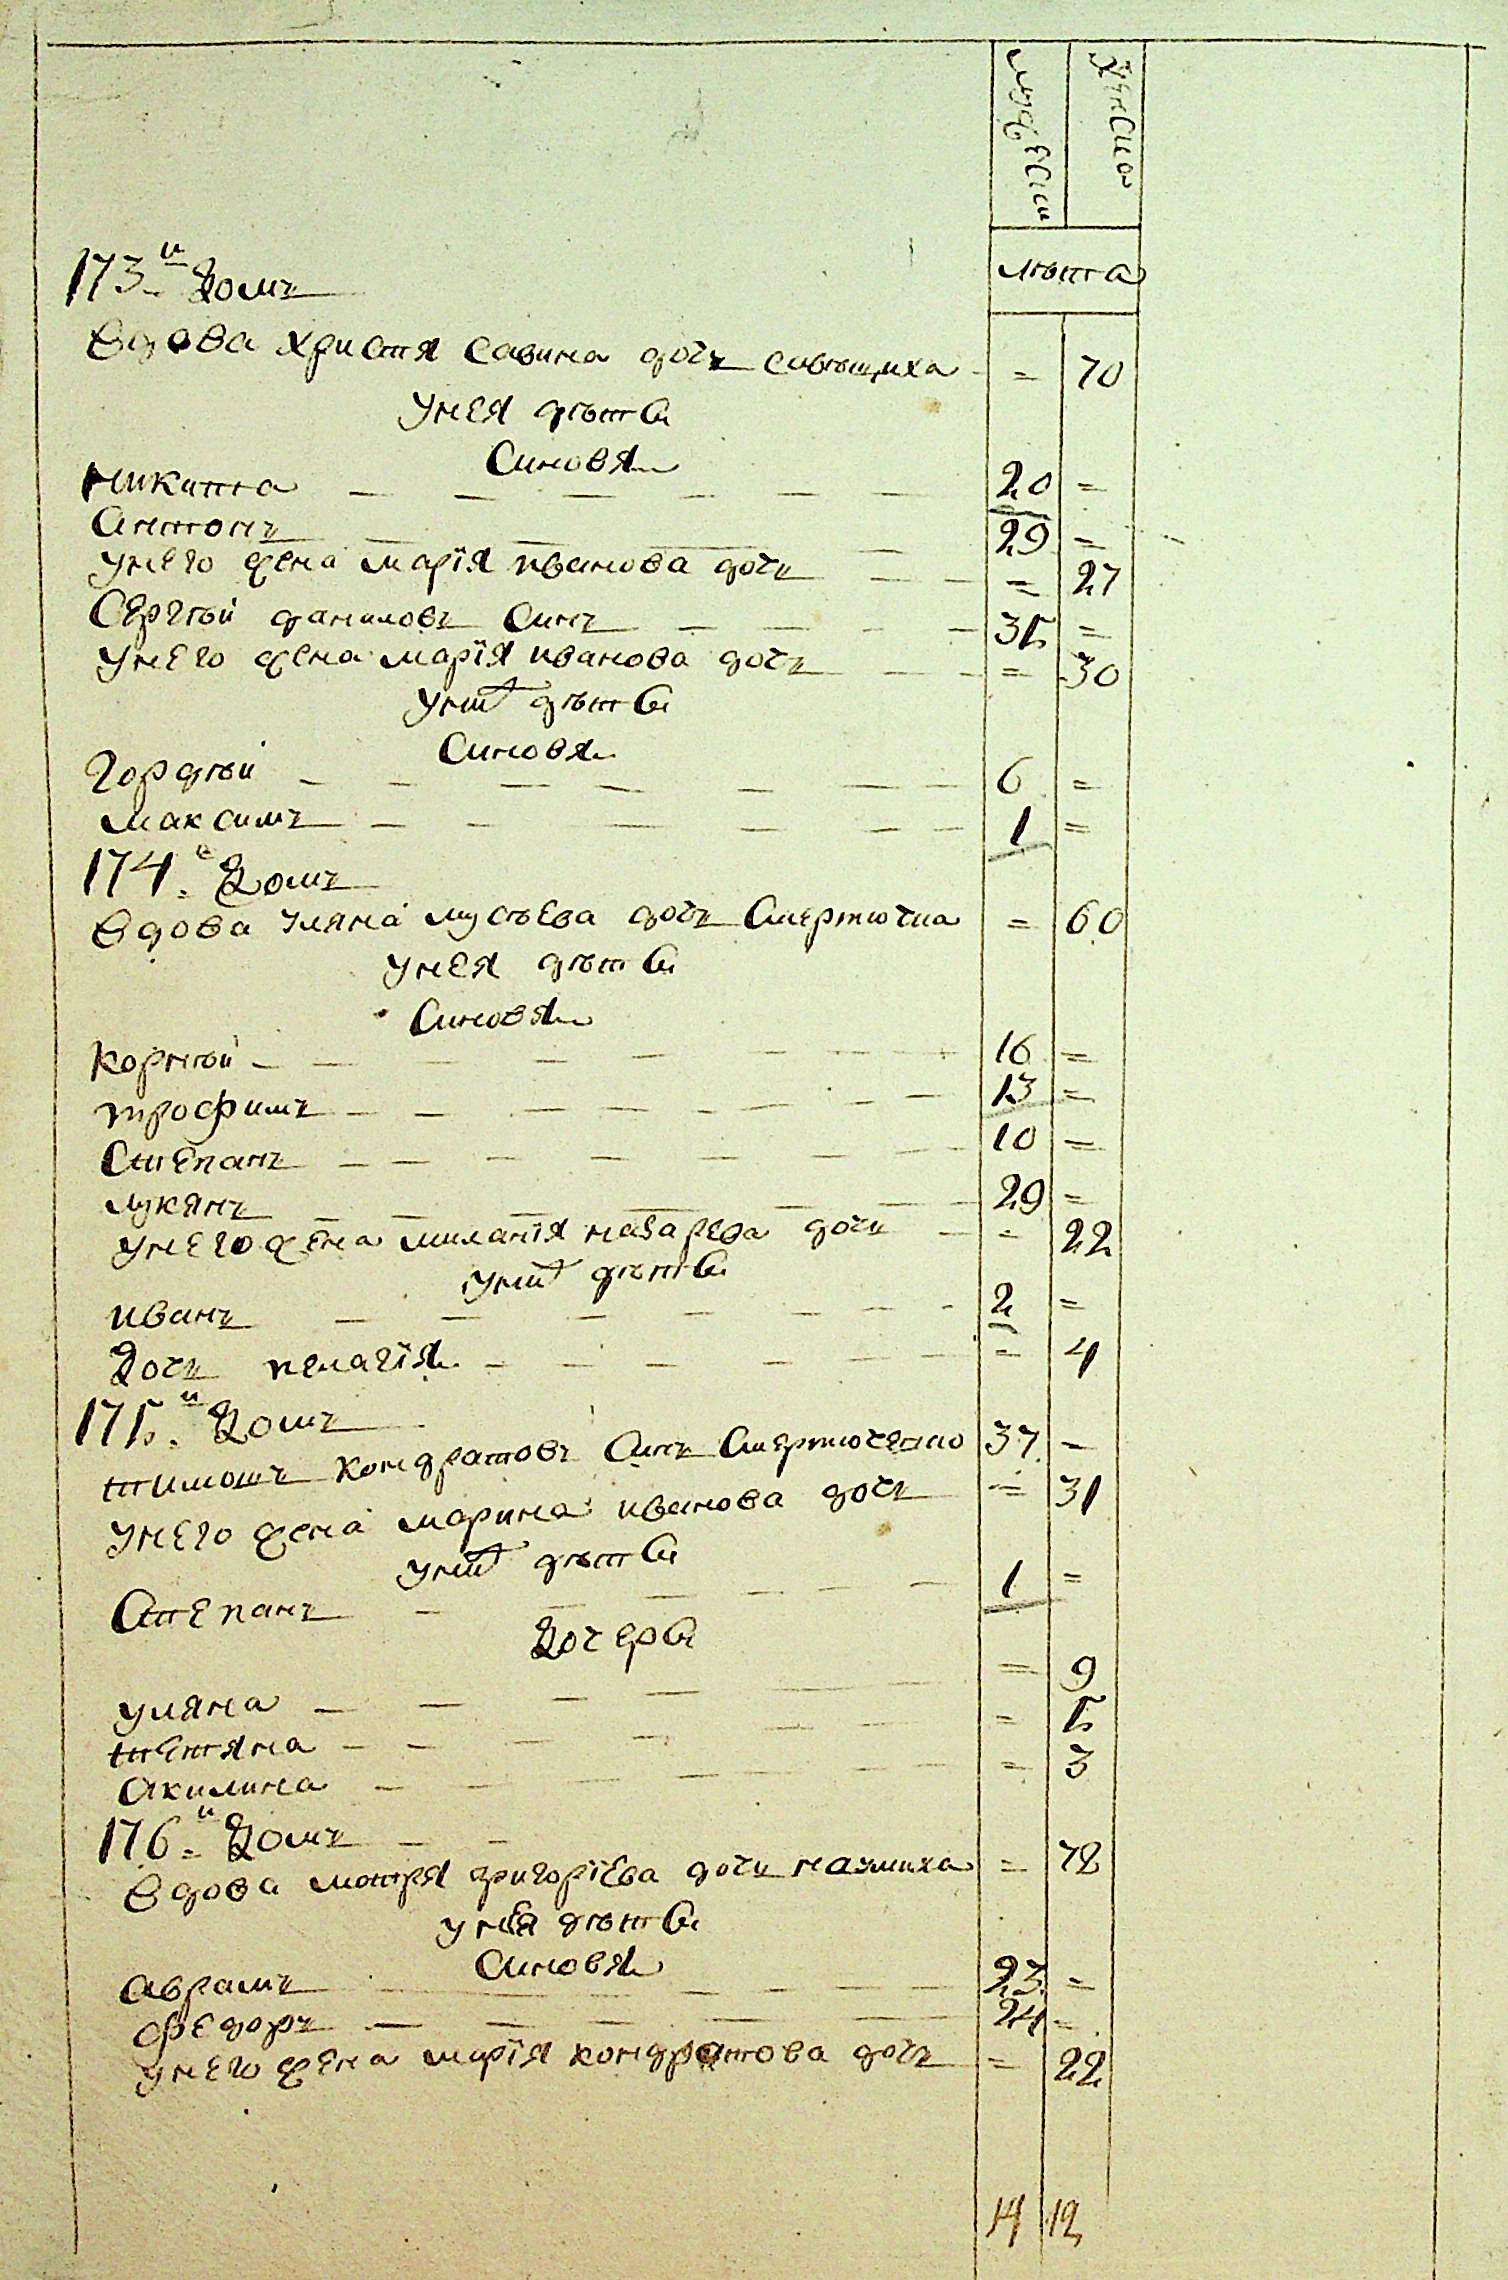 мужеска женска
лѣта
173й Домъ
вдова христя савина дочъ = 70
унея дѣти
Синовя
никита 20 =
антонъ 29 =
унего жена марїя иванова дочъ = 27
Сергѣй даниловъ Синъ 35 =
унего жена марїя иванова дочъ = 30
унит дѣти
Синовя
гордѣй 6 =
максимъ 1 =
174й Домъ
вдова уляна мусѣева дочъ Смертючка = 60
унея дѣти
Синовя
корнѣй 16 =
трофимъ 13 =
Степанъ 10 =
лукянъ 29 =
унего жена миланїя назарева дочъ = 22
унит дѣти
иванъ 2 =
Дочъ пелагїя = 4
175й Домъ
тимошъ кондратовъ Синъ Смертюченко 37 =
унего жена марина иванова дочъ = 31
унит дѣти
Степанъ 1 =
Дочери
уляна = 9
тетяна = 5
акилина = 3
176й Домъ
вдова мотря григорїева дочъ наумиха = 72
унея дѣти
Синовя
аврамъ 23 =
федоръ 24 =
унего жена марїя кондратова дочъ = 22
14 12